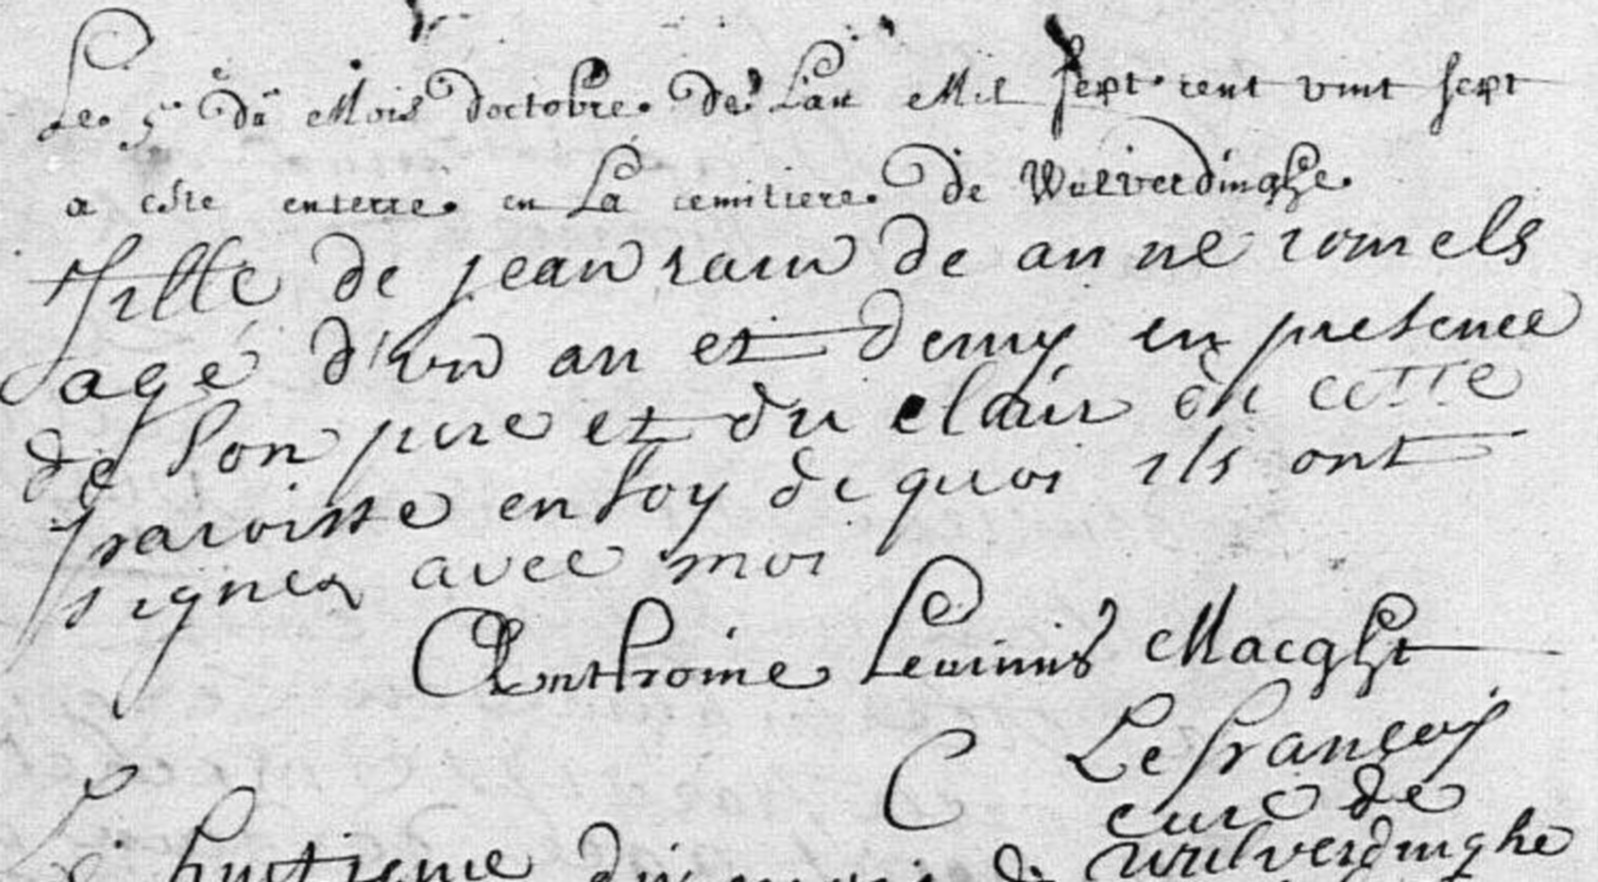 Le 5e du Mois doctobre de Lan Mil sept cent vint sept
a este enterre en La cemitiere de Wulverdinghe
fille de jean de anne romels
agé d'un an et demy en presence
de son pere et du clair de cette
paroisse en foy de quoi ils ont
signez avec moi
Anthoine Levinus Macght
C Lefrançois
curé de
wulverdinghe
Le huitieme du mois de